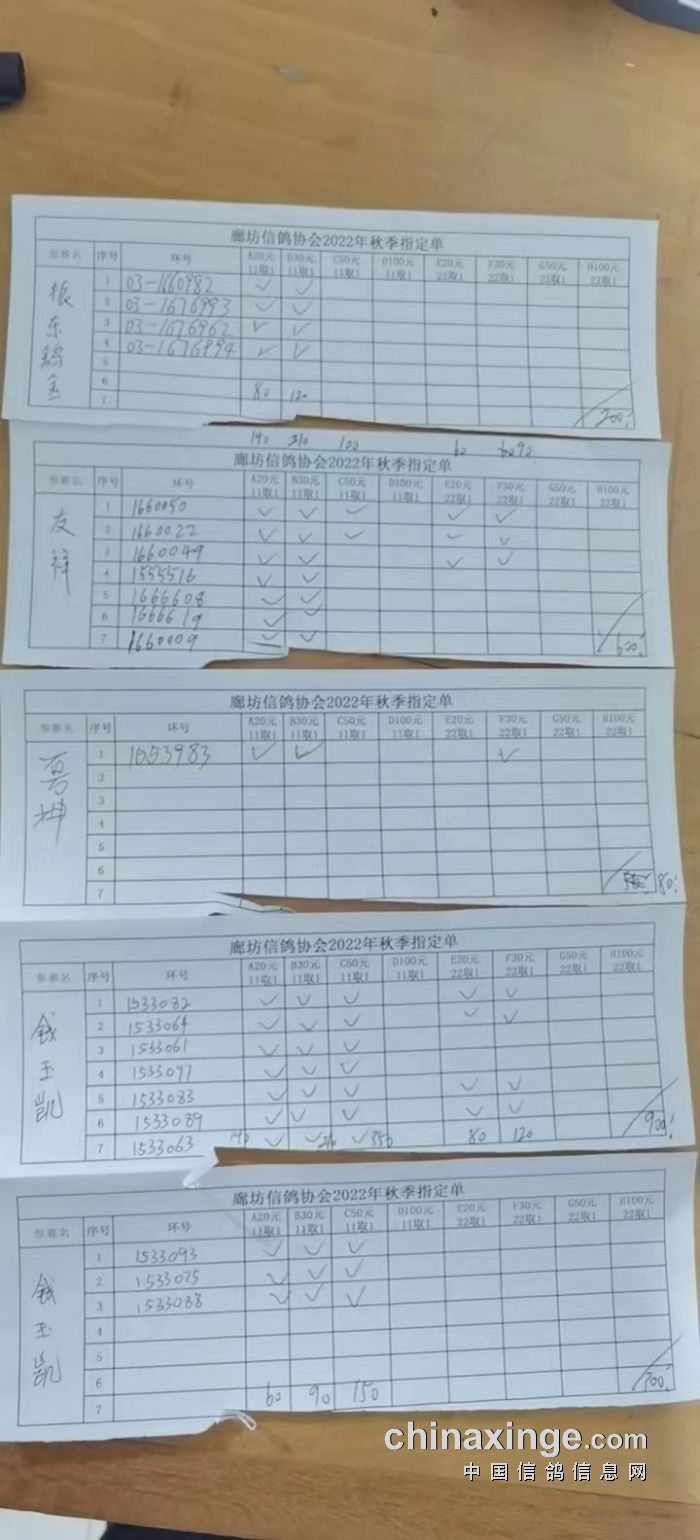 廊坊信鸽协会2022年秋季指定单
参赛名 序号 环号 A20元 11取1 B30元 11取1 C50元 11取1 D100元 11取1 E20元 22取1 F30元 22取1 G50元 22取1 H100元 22取1
振东
1 03-1660982 ✓ ✓
2 03-1676993 ✓ ✓
3 03-1676962 ✓ ✓
4 03-1676994 ✓ ✓
5
6
7 80 120 200
140 210 100 60
廊坊信鸽协会2022年秋季指定单
参赛名 序号 环号 A20元 11取1 B30元 11取1 C50元 11取1 D100元 11取1 E20元 22取1 F30元 22取1 G50元 22取1 H100元 22取1
友祥
1 1660050 ✓ ✓ ✓ ✓ ✓
2 1660022 ✓ ✓ ✓ ✓ ✓
3 1660049 ✓ ✓ ✓ ✓
4 1555516 ✓ ✓
5 1666608 ✓ ✓
6 1666619 ✓ ✓
7 1660009 ✓ ✓ 600
廊坊信鸽协会2022年秋季指定单
参赛名 序号 环号 A20元 11取1 B30元 11取1 C50元 11取1 D100元 11取1 E20元 22取1 F30元 22取1 G50元 22取1 H100元 22取1
1 1653983 ✓ ✓ ✓
2
3
4
5
6
7 80
廊坊信鸽协会2022年秋季指定单
参赛名 序号 环号 A20元 11取1 B30元 11取1 C50元 11取1 D100元 11取1 E20元 22取1 F30元 22取1 G50元 22取1 H100元 22取1
钱玉凯
1 1533082 ✓ ✓ ✓ ✓ ✓
2 1533064 ✓ ✓ ✓ ✓ ✓
3 1533061 ✓ ✓ ✓
4 1533097 ✓ ✓ ✓
5 1533083 ✓ ✓ ✓ ✓ ✓
6 1533089 ✓ ✓ ✓ ✓ ✓
7 1533063 140 ✓ ✓ 210 ✓ 350 80 120 900
廊坊信鸽协会2022年秋季指定单
参赛名 序号 环号 A20元 11取1 B30元 11取1 C50元 11取1 D100元 11取1 E20元 22取1 F30元 22取1 G50元 22取1 H100元 22取1
钱玉凯
1 1533093 ✓ ✓ ✓
2 1533075 ✓ ✓ ✓
3 1533088 ✓ ✓ ✓
4
5
6 60 90 150 300
7
chinaxinge.com
中国信鸽信息网